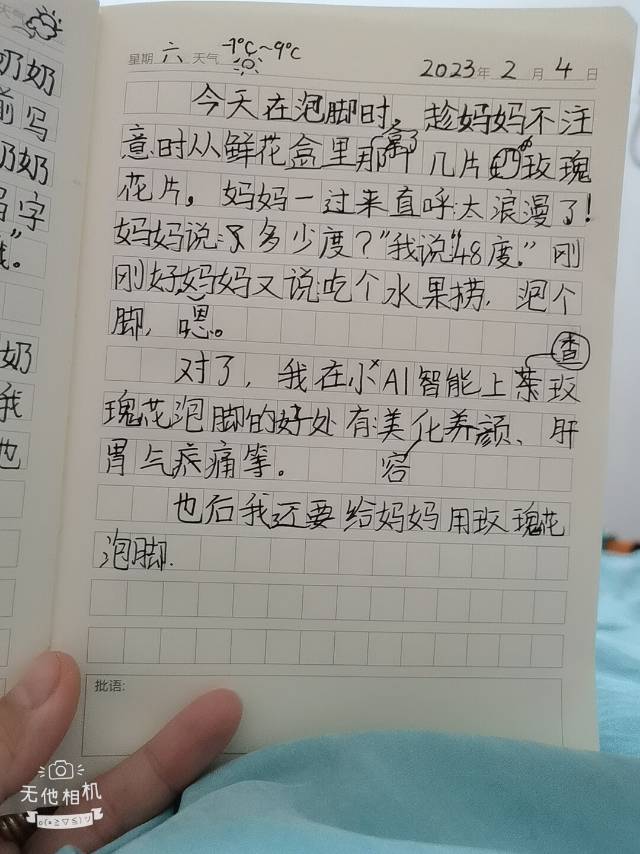 天气
奶奶
前写
奶奶
名字
钱。"
奶
我
也
星期 六 天气 -1℃~9℃ 2023年 2 月 4 日
今天在泡脚时，趁妈妈不注
意时从鲜花盒里拿了几片玫瑰
花片。妈妈一过来直呼太浪漫了！
妈妈说：了多少度？"我说"48度."刚
刚好妈妈又说吃个水果捞，泡个
脚，嗯。
查
对了，我在小AI智能上茶玫
瑰花泡脚的好处有美化养颜、肝
胃气疾痛等。 容
也后我还要给妈妈用玫瑰花
泡脚.
批语:
无他相机